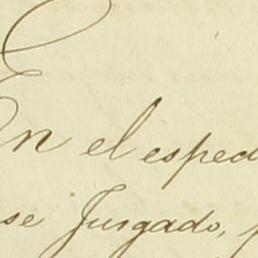 En el esped
se Jusgado,